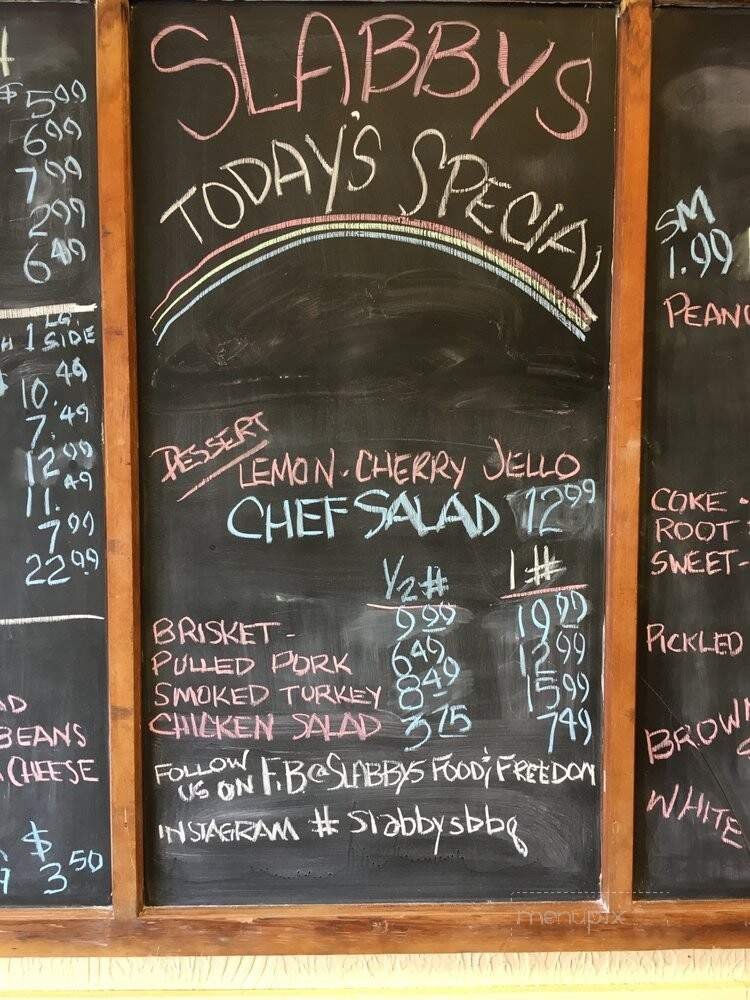 $5.99
6.99
7.99
2.99
6.49
H 1 LG.
SIDE
10.49
7.49
12.99
11.49
7.99
22.99
BEANS
CHEESE
$
3.50
SLABBYS
TODAY'S SPECIAL
DESSERT
LEMON-CHERRY JELLO
CHEF SALAD 12.99
1/2# 1#
BRISKET- 9.99 19.99
PULLED PORK 6.49 12.99
SMOKED TURKEY 8.49 15.99
CHICKEN SALAD 3.75 7.49
FOLLOW
US ON F.B@SLABBYS FOOD; FREEDOM
INSTAGRAM # slabbysbbq
SM
1.99
PEAN
COKE -
ROOT
SWEET-
PICKLED
BROWN
WHITE
menupix